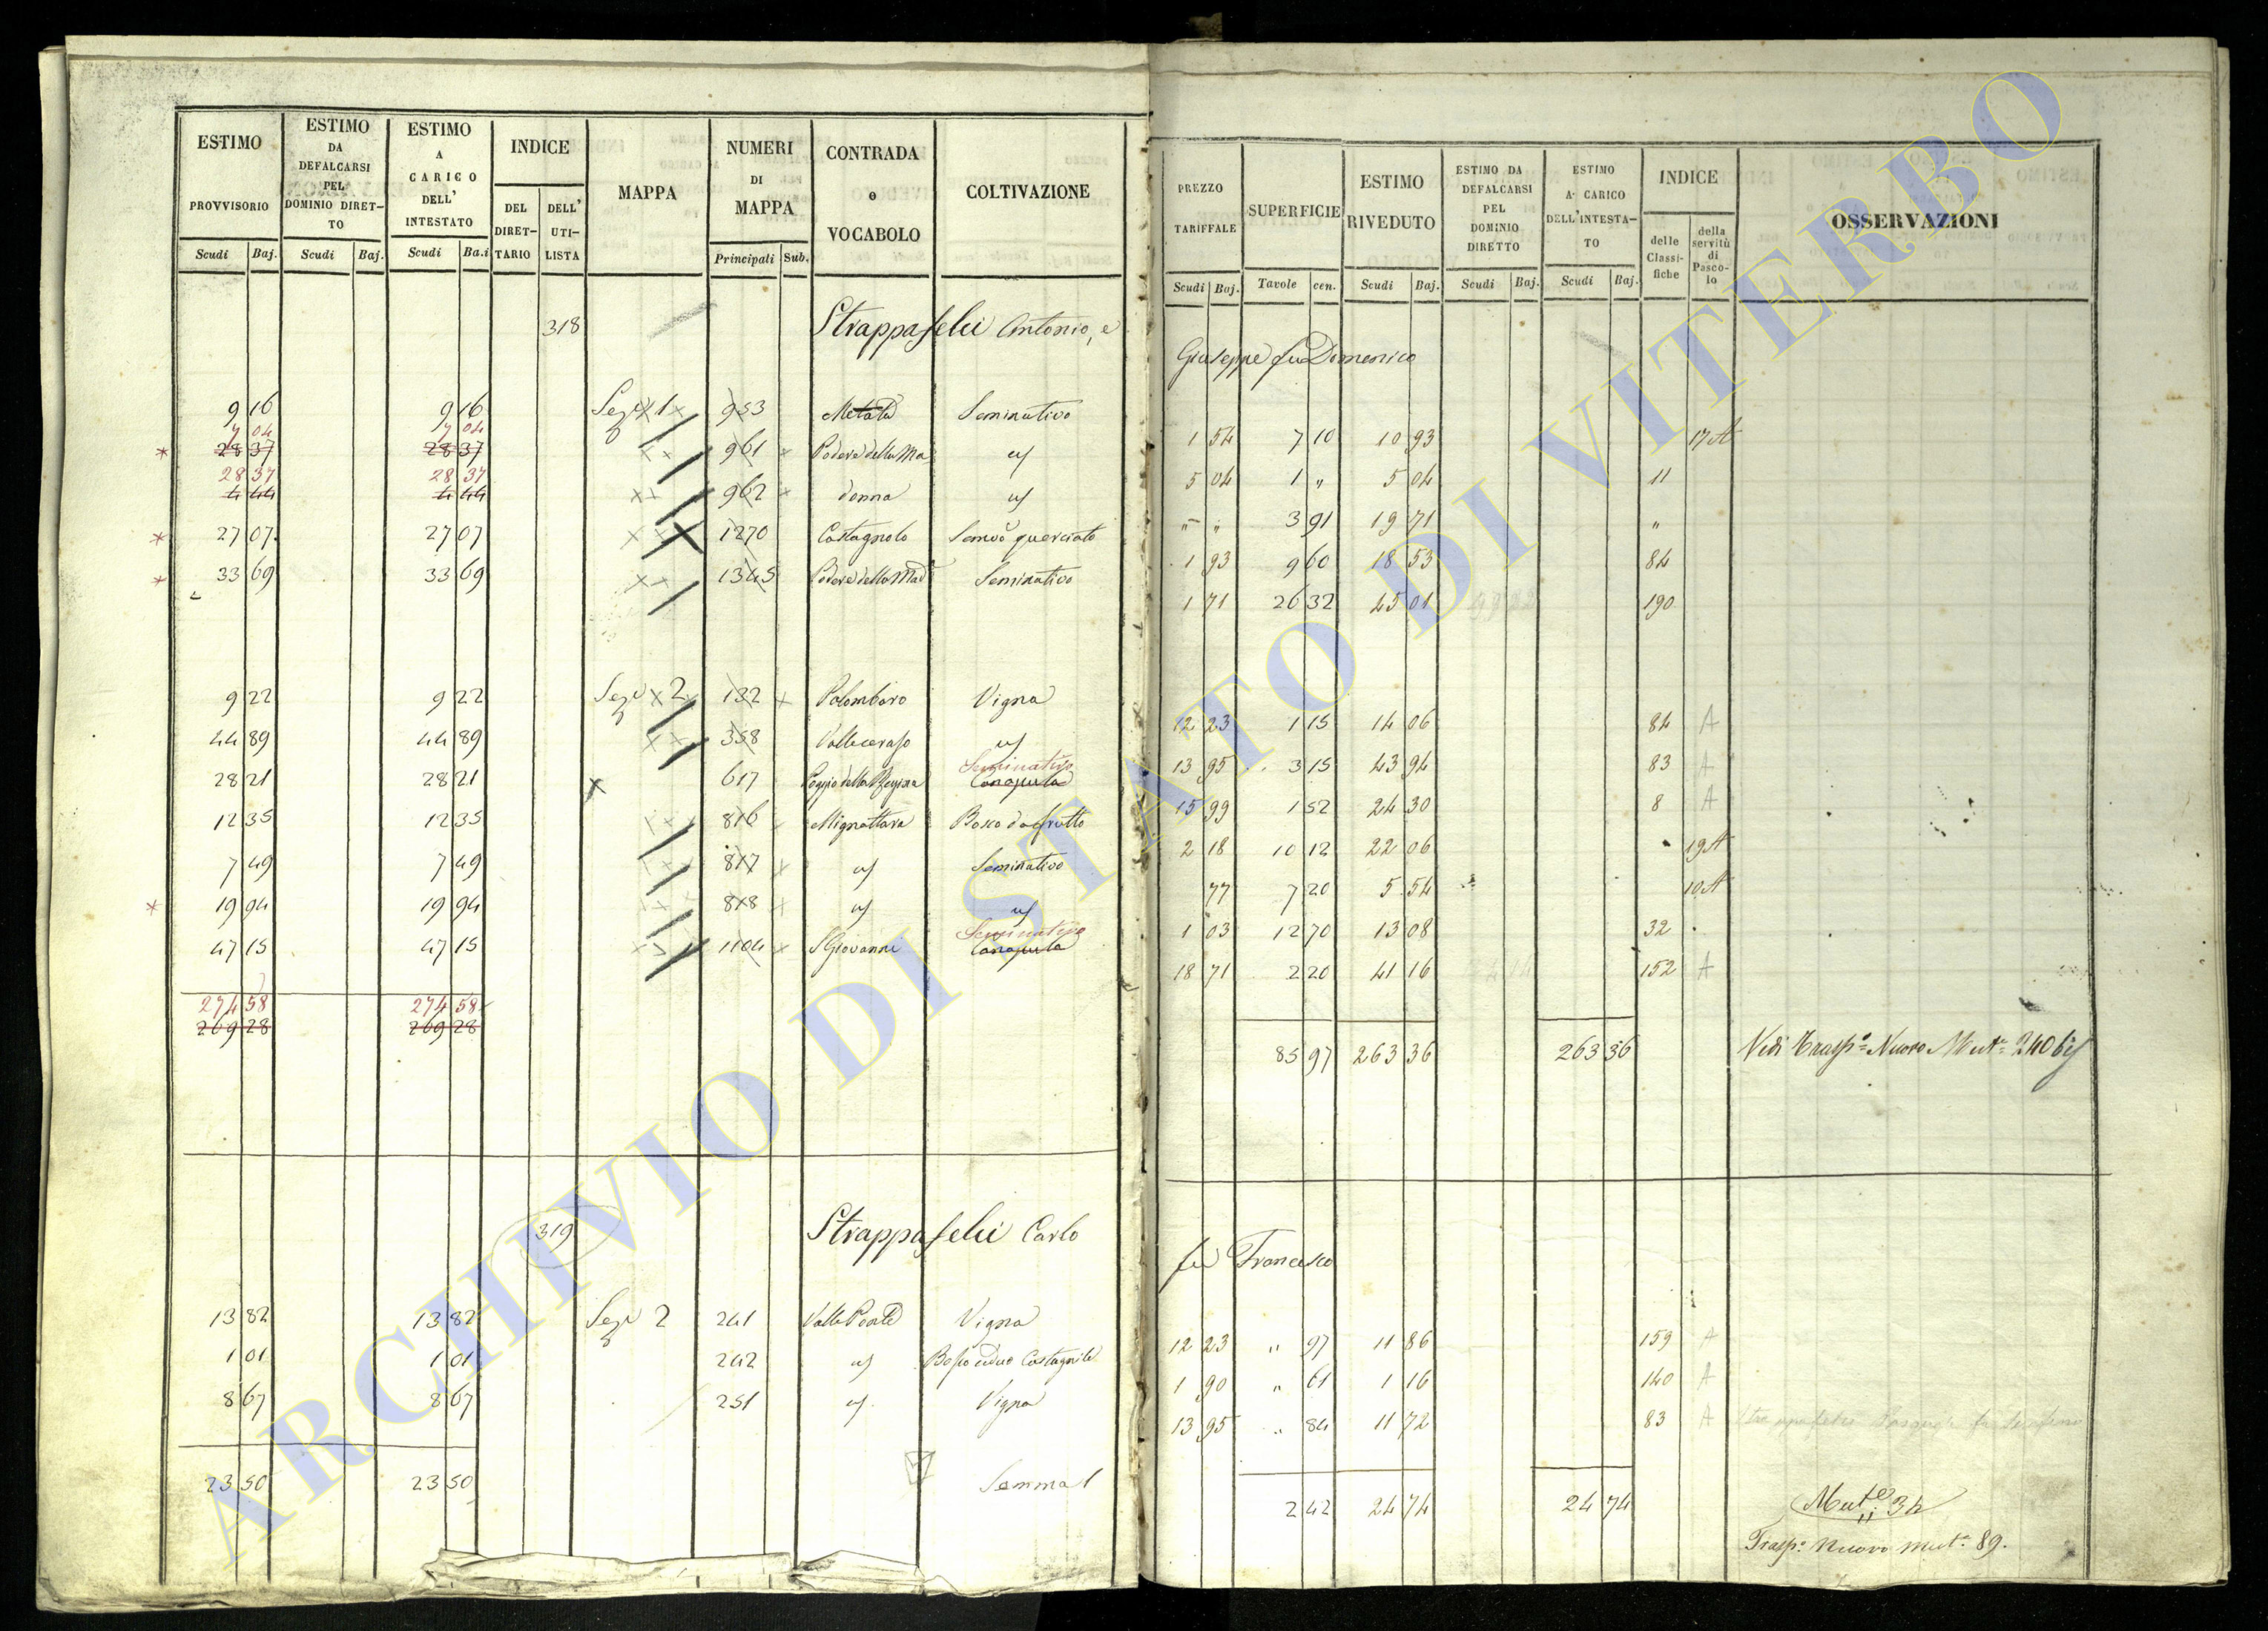 ESTIMO PROVVISORIO
Scudi Baj.
ESTIMO DA DEFALCARSI PEL DOMINIO DIRET-TO
Scudi Baj.
ESTIMO A CARICO DELL' INTESTATO
Scudi Ba.i
INDICE
DEL DIRET-TARIO
DELL' UTI-LISTA
MAPPA
NUMERI DI MAPPA
Principali Sub.
CONTRADA o VOCABOLO
COLTIVAZIONE
PREZZO TARIFFALE
Scudi Baj.
SUPERFICIE
Tavole cen.
ESTIMO RIVEDUTO
Scudi Baj.
ESTIMO DA DEFALCARSI PEL DOMINIO DIRETTO
Scudi Baj.
ESTIMO A CARICO DELL'INTESTA-TO
Scudi Baj.
INDICE
delle Classi-fiche
della servitù di Pasco-lo
OSSERVAZIONI
318 Strappafelci Antonio, e Giuseppe fu Domenico
9 16 9 16 Sez.e 1 953 Seminativo 1 54 7 10 10 93 17 A
7 04 7 04
* 28 37 28 37 961 Podere della Ma 5 04 1 " 5 04 11
28 37 28 37
4 44 4 44 962 donna " " 3 91 19 71 "
* 27 07 27 07 1270 Castagnolo Semvo querciato 1 93 9 60 18 53 84
* 33 69 33 69 1345 Podere della Mad Seminativo 1 71 26 32 45 01 190
9 22 9 22 Sez.e 2 132 Palombaro Vigna 12 23 1 15 14 06 84 A
44 89 44 89 358 Valleceraso 13 95 3 15 43 94 83 A
Seminativo
28 21 28 21 617 Poggio della Regina Canapula 15 99 1 52 24 30 8 A
12 35 12 35 816 Mignattara Bosco da frutto 2 18 10 12 22 06 19 A
7 49 7 49 817 Seminativo 77 7 20 5 54 10 A
* 19 94 19 94 818 1 03 12 70 13 08 32
Seminativo
47 15 47 15 1104 S Giovanni Canapula 18 71 2 20 41 16 152 A
274 58 274 58
269 28 269 28 85 97 263 36 263 36 Vedi Trasp.o Nuovo Mut.a 240 bis
319 Strappafelci Carlo fu Francesco
13 82 13 82 Sez.e 2 241 Valle Ponte Vigna 12 23 " 97 11 86 159 A
1 01 1 01 242 Bosco ceduo Castagnile 1 90 " 61 1 16 140 A
8 67 8 67 251 Vigna 13 95 " 84 11 72 83 A
23 50 23 50 Somma 1 2 42 24 74 24 74 Mut.e 34
Trasp.o Nuovo mut.a 89.
ARCHIVIO DI STATO DI VITERBO